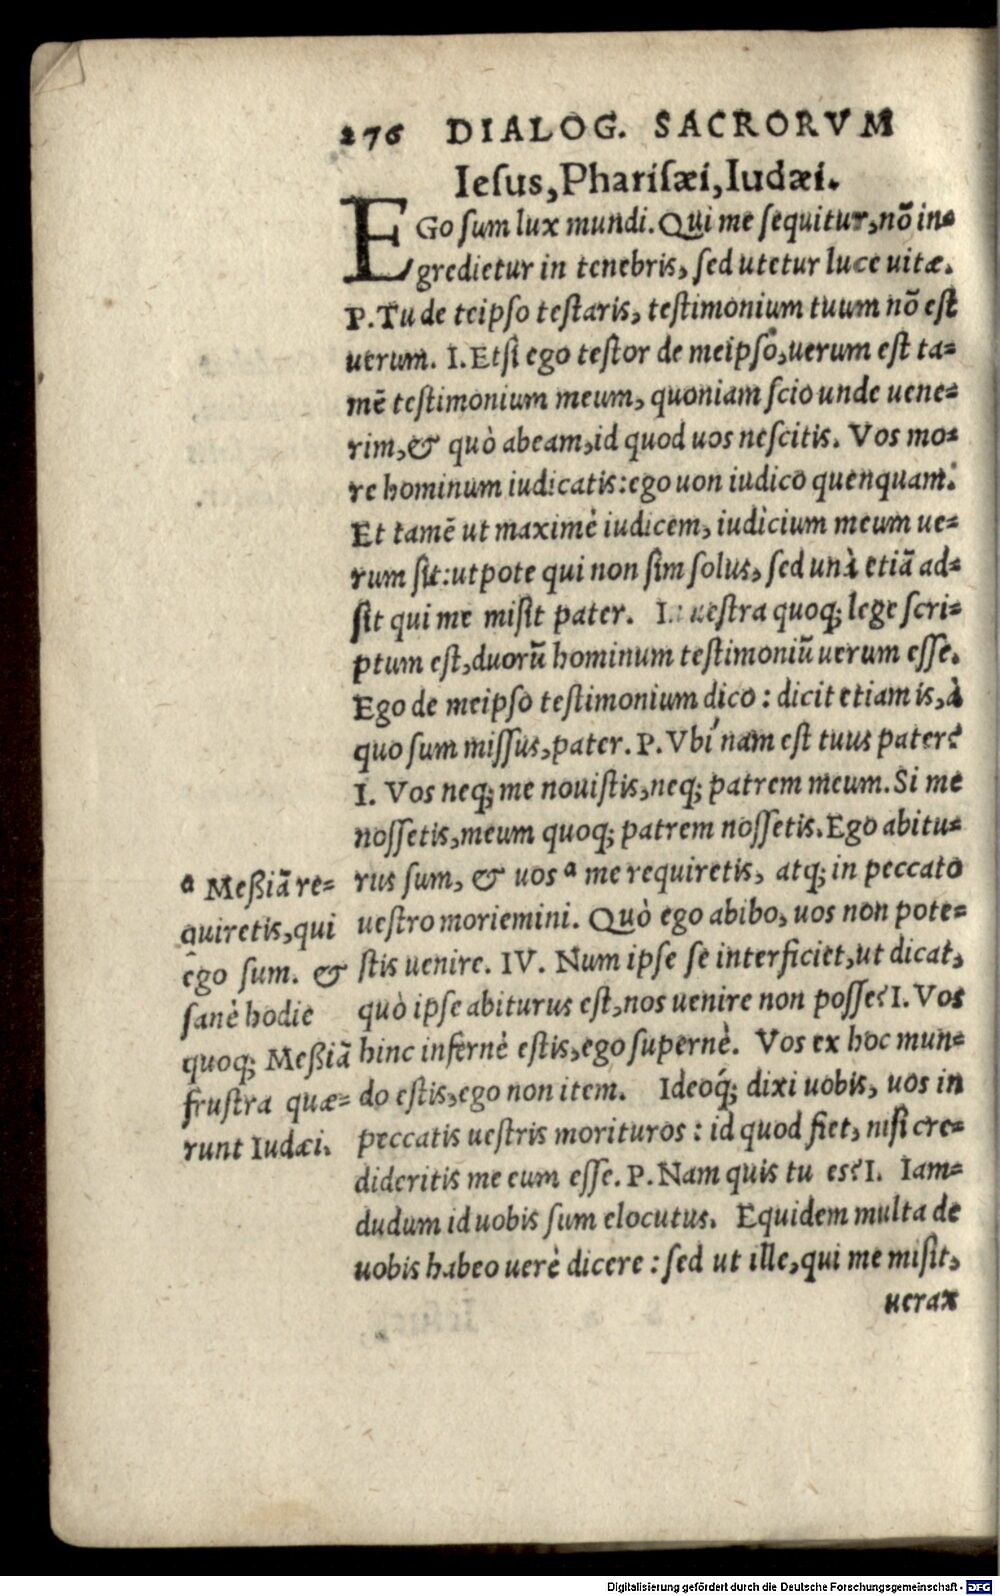 276 DIALOG. SACRORVM
Ieſus, Phariſæi, Iudæi.
EGo ſum lux mundi. Qui me ſequitur, nõ in=
gredietur in tenebris, ſed utetur luce uitæ.
P. Tu de teipſo teſtaris, teſtimonium tuum nõ eſt
uerum. I. Etſi ego teſtor de meipſo, uerum eſt ta=
mẽ teſtimonium meum, quoniam ſcio unde uene=
rim, & quò abeam, id quod uos neſcitis. Vos mo=
re hominum iudicatis: ego uon iudico quenquam.
Et tamẽ ut maximè iudicem, iudicium meum ue=
rum ſit: utpote qui non ſim ſolus, ſed unà etiã ad=
ſit qui me miſit pater. I. ueſtra quoq; lege ſcri=
ptum eſt, duorũ hominum teſtimoniũ uerum eſſe.
Ego de meipſo teſtimonium dico: dicit etiam is, à
quo ſum miſſus, pater. P. Vbi nam eſt tuus pater?
I. Vos neq; me nouiſtis, neq; patrem meum. Si me
noſſetis, meum quoq; patrem noſſetis. Ego abitu=
rus ſum, & uos ª me requiretis, atq; in peccato
ueſtro moriemini. Quò ego abibo, uos non pote=
ſtis uenire. IV. Num ipſe ſe interficiet, ut dicat,
quò ipſe abiturus eſt, nos uenire non poſſe? I. Vos
hinc infernè eſtis, ego ſupernè. Vos ex hoc mun=
do eſtis, ego non item. Ideoq́; dixi uobis, uos in
peccatis ueſtris morituros: id quod fiet, niſi cre=
dideritis me eum eſſe. P. Nam quis tu es? I. Iam=
dudum id uobis ſum elocutus. Equidem multa de
uobis habeo uerè dicere: ſed ut ille, qui me miſit,
uerax
ª Meßiã re=
quiretis, qui
ego ſum. &
ſanè hodie
quoq; Meßiã
fruſtra quæ=
runt Iudæi.
Digitalisierung gefördert durch die Deutsche Forschungsgemeinschaft - DFG